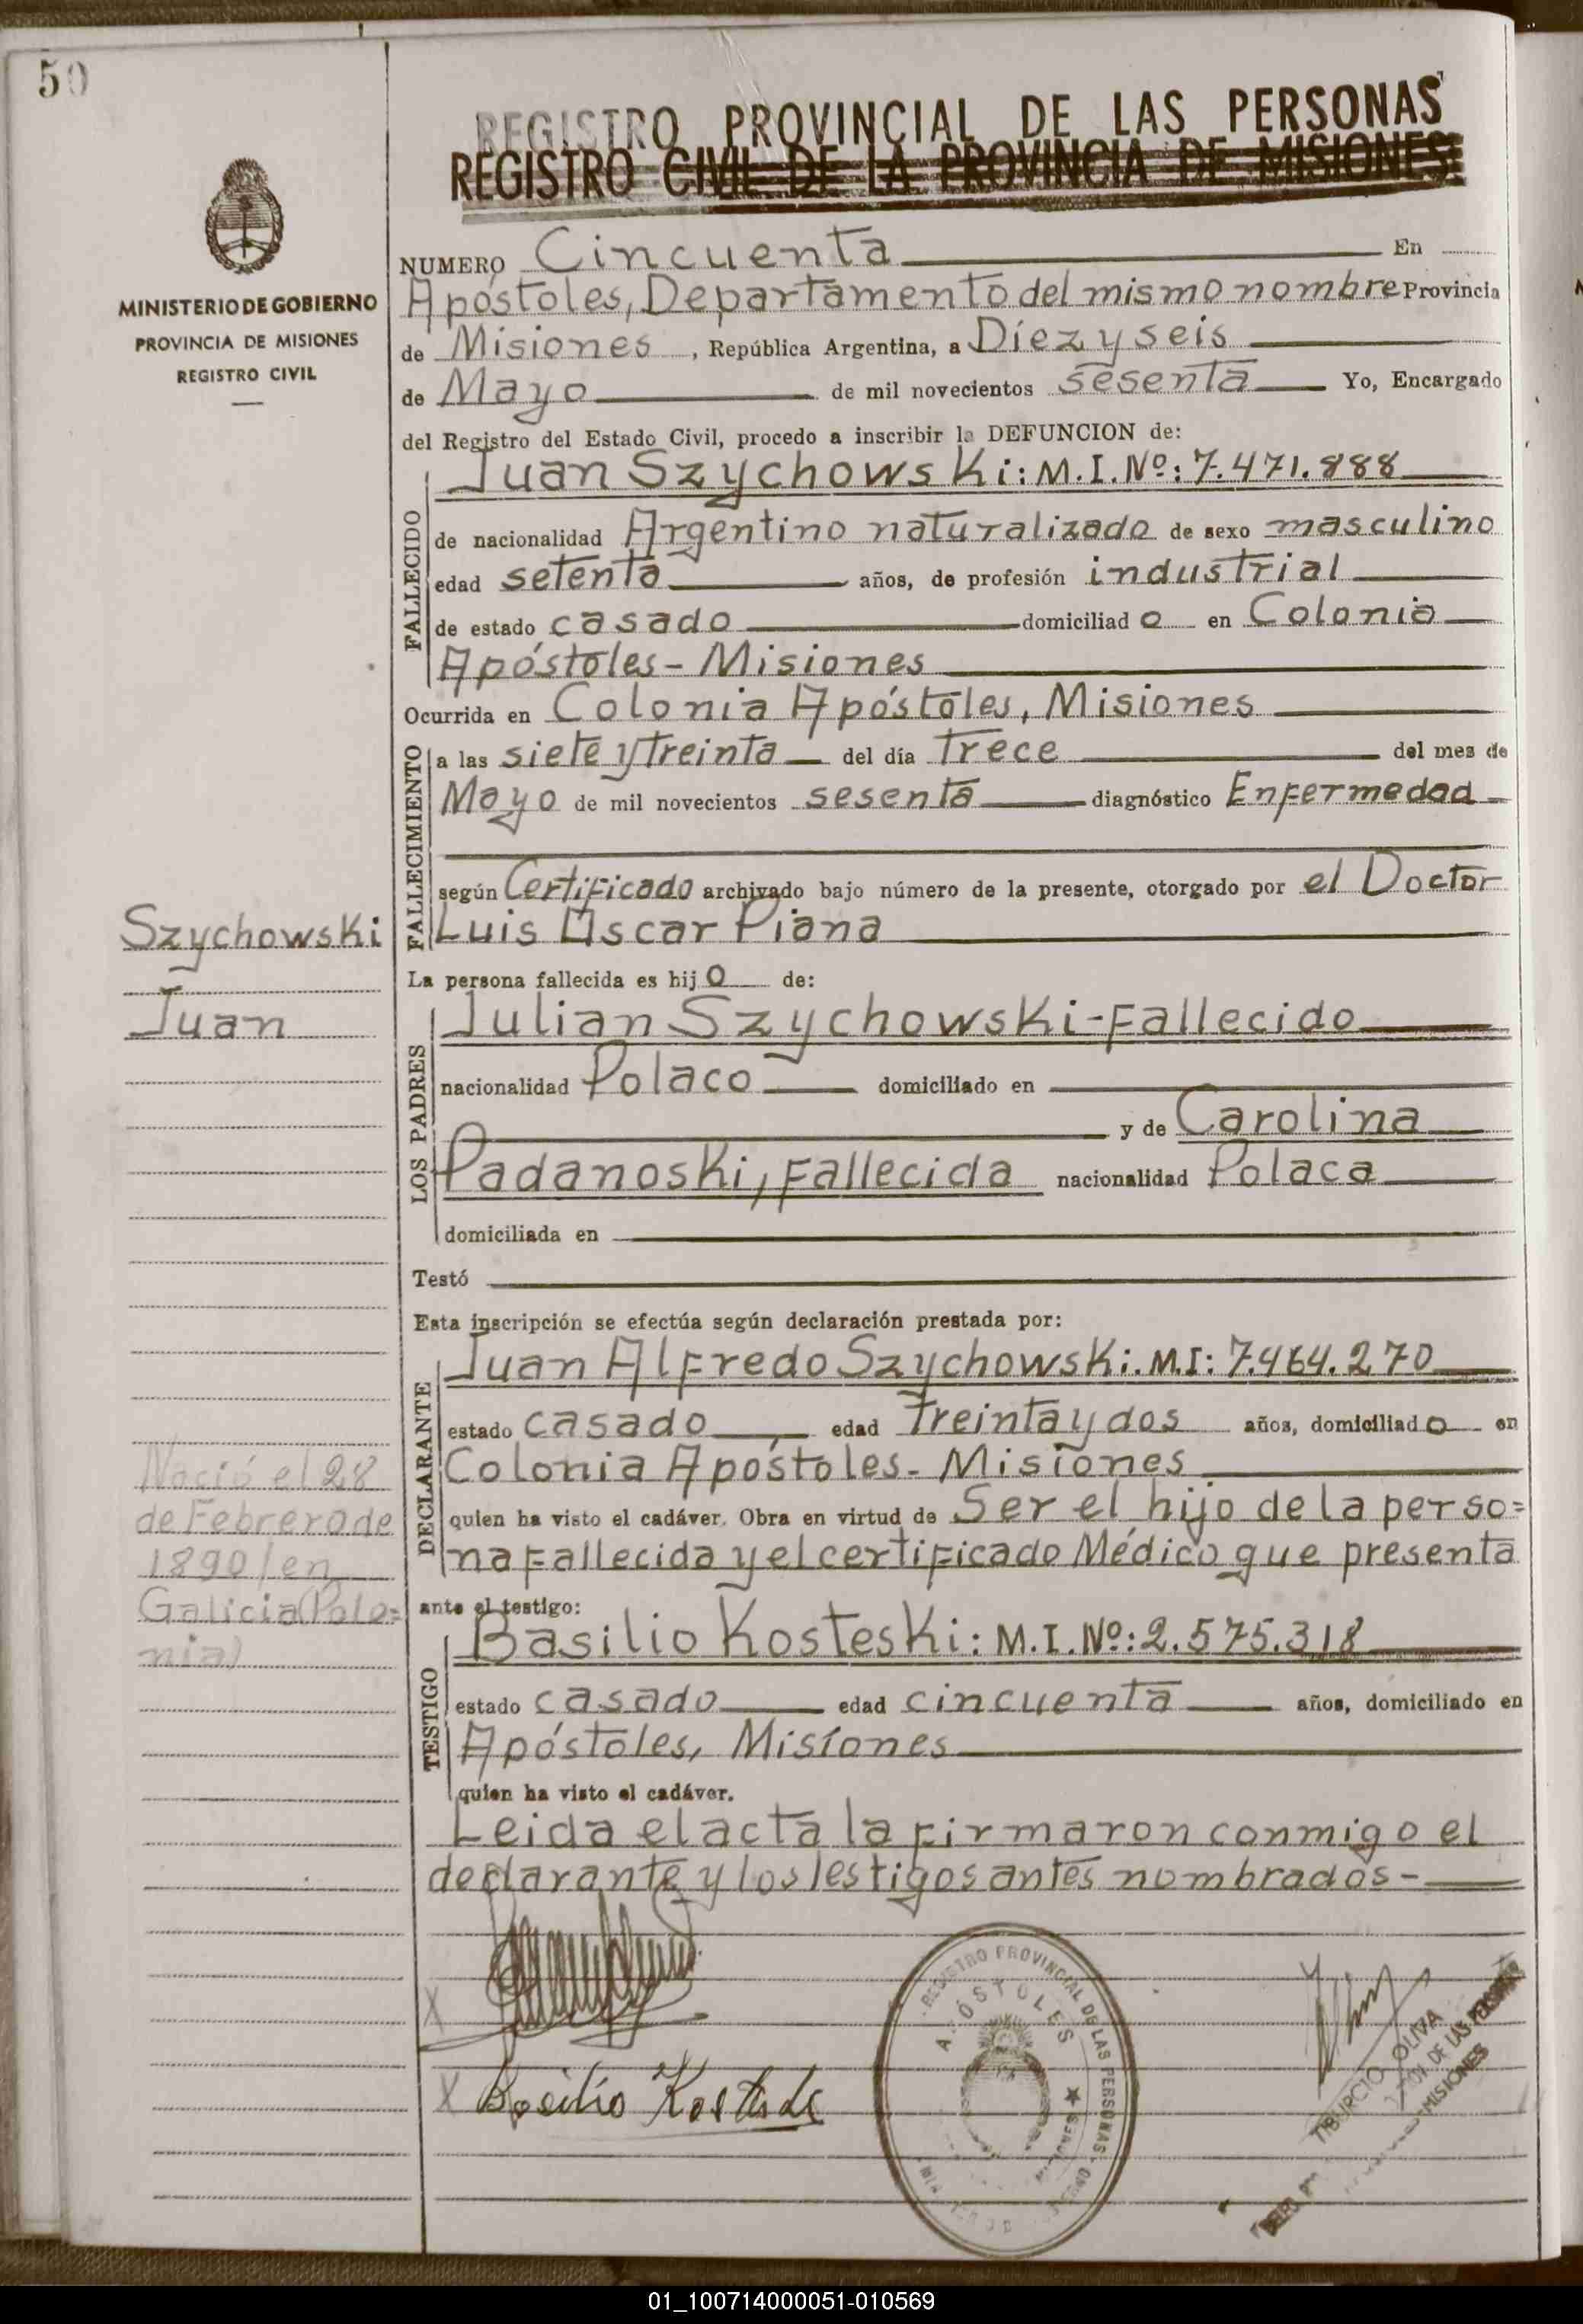 50
MINISTERIO DE GOBIERNO
PROVINCIA DE MISIONES
REGISTRO CIVIL
REGISTRO PROVINCIAL DE LAS PERSONAS
REGISTRO CIVIL DE LA PROVINCIA DE MISIONES
NUMERO Cincuenta En
Apóstoles, Departamento del mismo nombre Provincia
de Misiones, República Argentina, a Díez y seis
de Mayo de mil novecientos sesenta Yo, Encargado
del Registro del Estado Civil, procedo a inscribir la DEFUNCION de:
FALLECIDO
Juan Szychowski: M.I.Nº: 7.471.888
de nacionalidad Argentino naturalizado de sexo masculino
edad setenta años, de profesión industrial
de estado casado domiciliado en Colonia
Apóstoles - Misiones
Ocurrida en Colonia Apóstoles, Misiones
FALLECIMIENTO
a las siete y treinta del día Trece del mes de
Mayo de mil novecientos sesenta diagnóstico Enfermedad
según Certificado archivado bajo número de la presente, otorgado por el Doctor
Luis Oscar Piana
Szychowski
Juan
La persona fallecida es hijo de:
LOS PADRES
Julian Szychowski - Fallecido
nacionalidad Polaco domiciliado en
y de Carolina
Padanoski, Fallecida nacionalidad Polaca
domiciliada en
Testó
Esta inscripción se efectúa según declaración prestada por:
DECLARANTE
Juan Alfredo Szychowski: M.I: 7.464.270
estado casado, edad Treinta y dos años, domiciliado en
Colonia Apóstoles - Misiones
quien ha visto el cadáver. Obra en virtud de Ser el hijo de la perso=
na fallecida y el certificado Médico que presenta
Nació el 28
de Febrero de
1890/en
Galicia (Polo=
nia)
ante el testigo:
TESTIGO
Basilio Kosteski: M.I.Nº: 2.575.318
estado casado edad cincuenta años, domiciliado en
Apóstoles, Misiones
quien ha visto el cadáver.
Leida el acta la firmaron conmigo el
declarante y los testigos antes nombrados -
X
X Basilio Kosteski
REGISTRO PROVINCIAL DE LAS PERSONAS
APÓSTOLES
MISIONES
TIBURCIO OLIVA
DE LAS PERSONAS
MISIONES
01_100714000051-010569